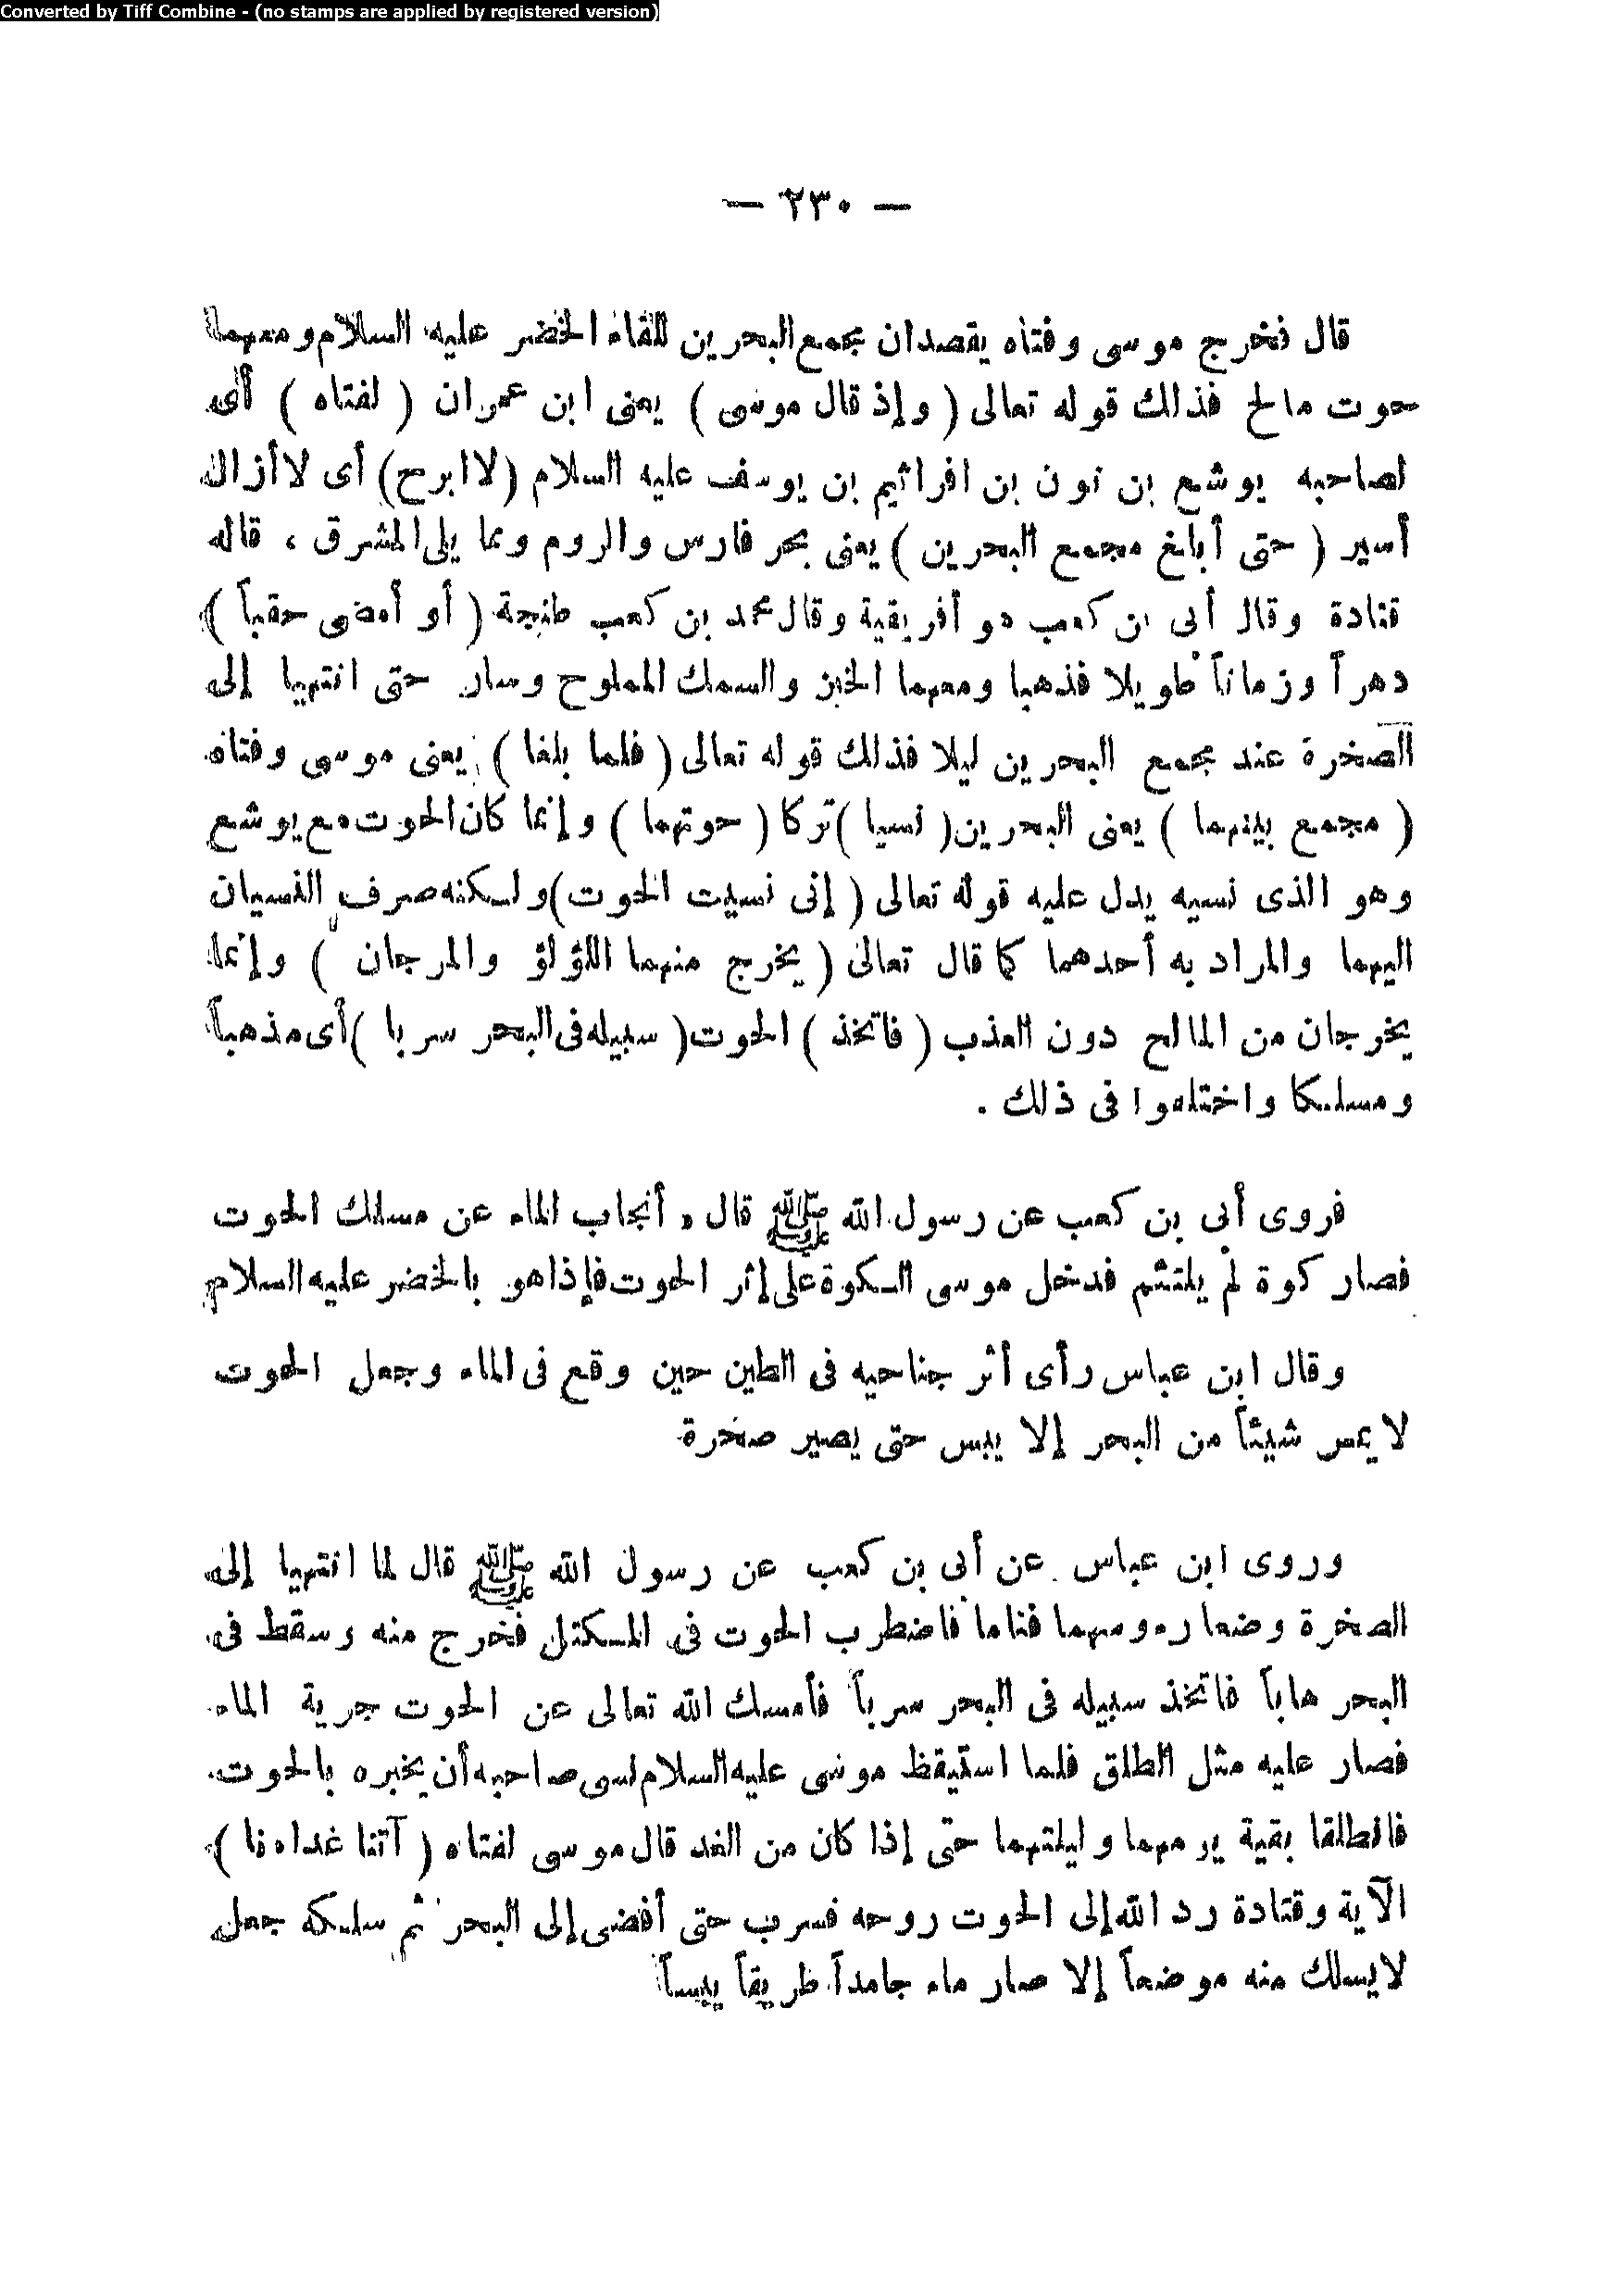 Converted by Tiff Combine - (no stamps are applied by registered version)
— ٢٣٠ —
قال فخرج موسى وفتاه يقصدان مجمع البحرين للقاء الخضر عليه السلام ومعهما
حوت مالح فذلك قوله تعالى ( وإذ قال موسى ) يعنى ابن عمران ( لفتاه ) أى
لصاحبه يوشع بن نون بن افراثيم بن يوسف عليه السلام (لا ابرح) أى لا أزال
أسير ( حتى أبلغ مجمع البحرين ) يعنى بحر فارس والروم ومما يلى المشرق ، قاله
قتادة وقال أبى بن كعب هو أفريقية وقال محمد بن كعب طنجة ( أو أمضى حقباً )
دهراً وزماناً طويلا فذهبا ومعهما الخبز والسمك المملوح وسار حتى انتهيا إلى
الصخرة عند مجمع البحرين ليلا فذلك قوله تعالى ( فلما بلغا ) يعنى موسى وفتاه
( مجمع بينهما ) يعنى البحرين ( نسيا ) تركا ( حوتهما ) وإنما كان الحوت مع يوشع
وهو الذى نسيه يدل عليه قوله تعالى ( إنى نسيت الحوت ) ولكنه صرف النسيان
اليهما والمراد به أحدهما كما قال تعالى ( يخرج منهما اللؤلؤ والمرجان ) وإنما
يخرجان من المالح دون العذب ( فاتخذ ) الحوت ( سبيله فى البحر سربا ) أى مذهباً
ومسلكا واختلفوا فى ذلك .
فروى أبى بن كعب عن رسول الله ﷺ قال « أنجاب الماء عن مسلك الحوت
فصار كوة لم يلتئم فدخل موسى الكوة على إثر الحوت فإذا هو بالخضر عليه السلام
وقال ابن عباس رأى أثر جناحيه فى الطين حين وقع فى الماء وجعل الحوت
لا يمس شيئاً من البحر إلا يبس حتى يصير صخرة
وروى ابن عباس عن أبى بن كعب عن رسول الله ﷺ قال لما انتهيا إلى
الصخرة وضعا رءوسهما فناما فاضطرب الحوت فى المكتل فخرج منه وسقط فى
البحر هاباً فاتخذ سبيله فى البحر سرباً فأمسك الله تعالى عن الحوت جرية الماء
فصار عليه مثل الطلق فلما استيقظ موسى عليه السلام نسى صاحبه أن يخبره بالحوت
فانطلقا بقية يومهما وليلتهما حتى إذا كان من الغد قال موسى لفتاه ( آتنا غداءنا )
الآية وقتادة رد الله إلى الحوت روحه فسرب حتى أفضى إلى البحر ثم سلكه جعل
لا يسلك منه موضعاً إلا صار ماء جامداً طريقاً يبساً